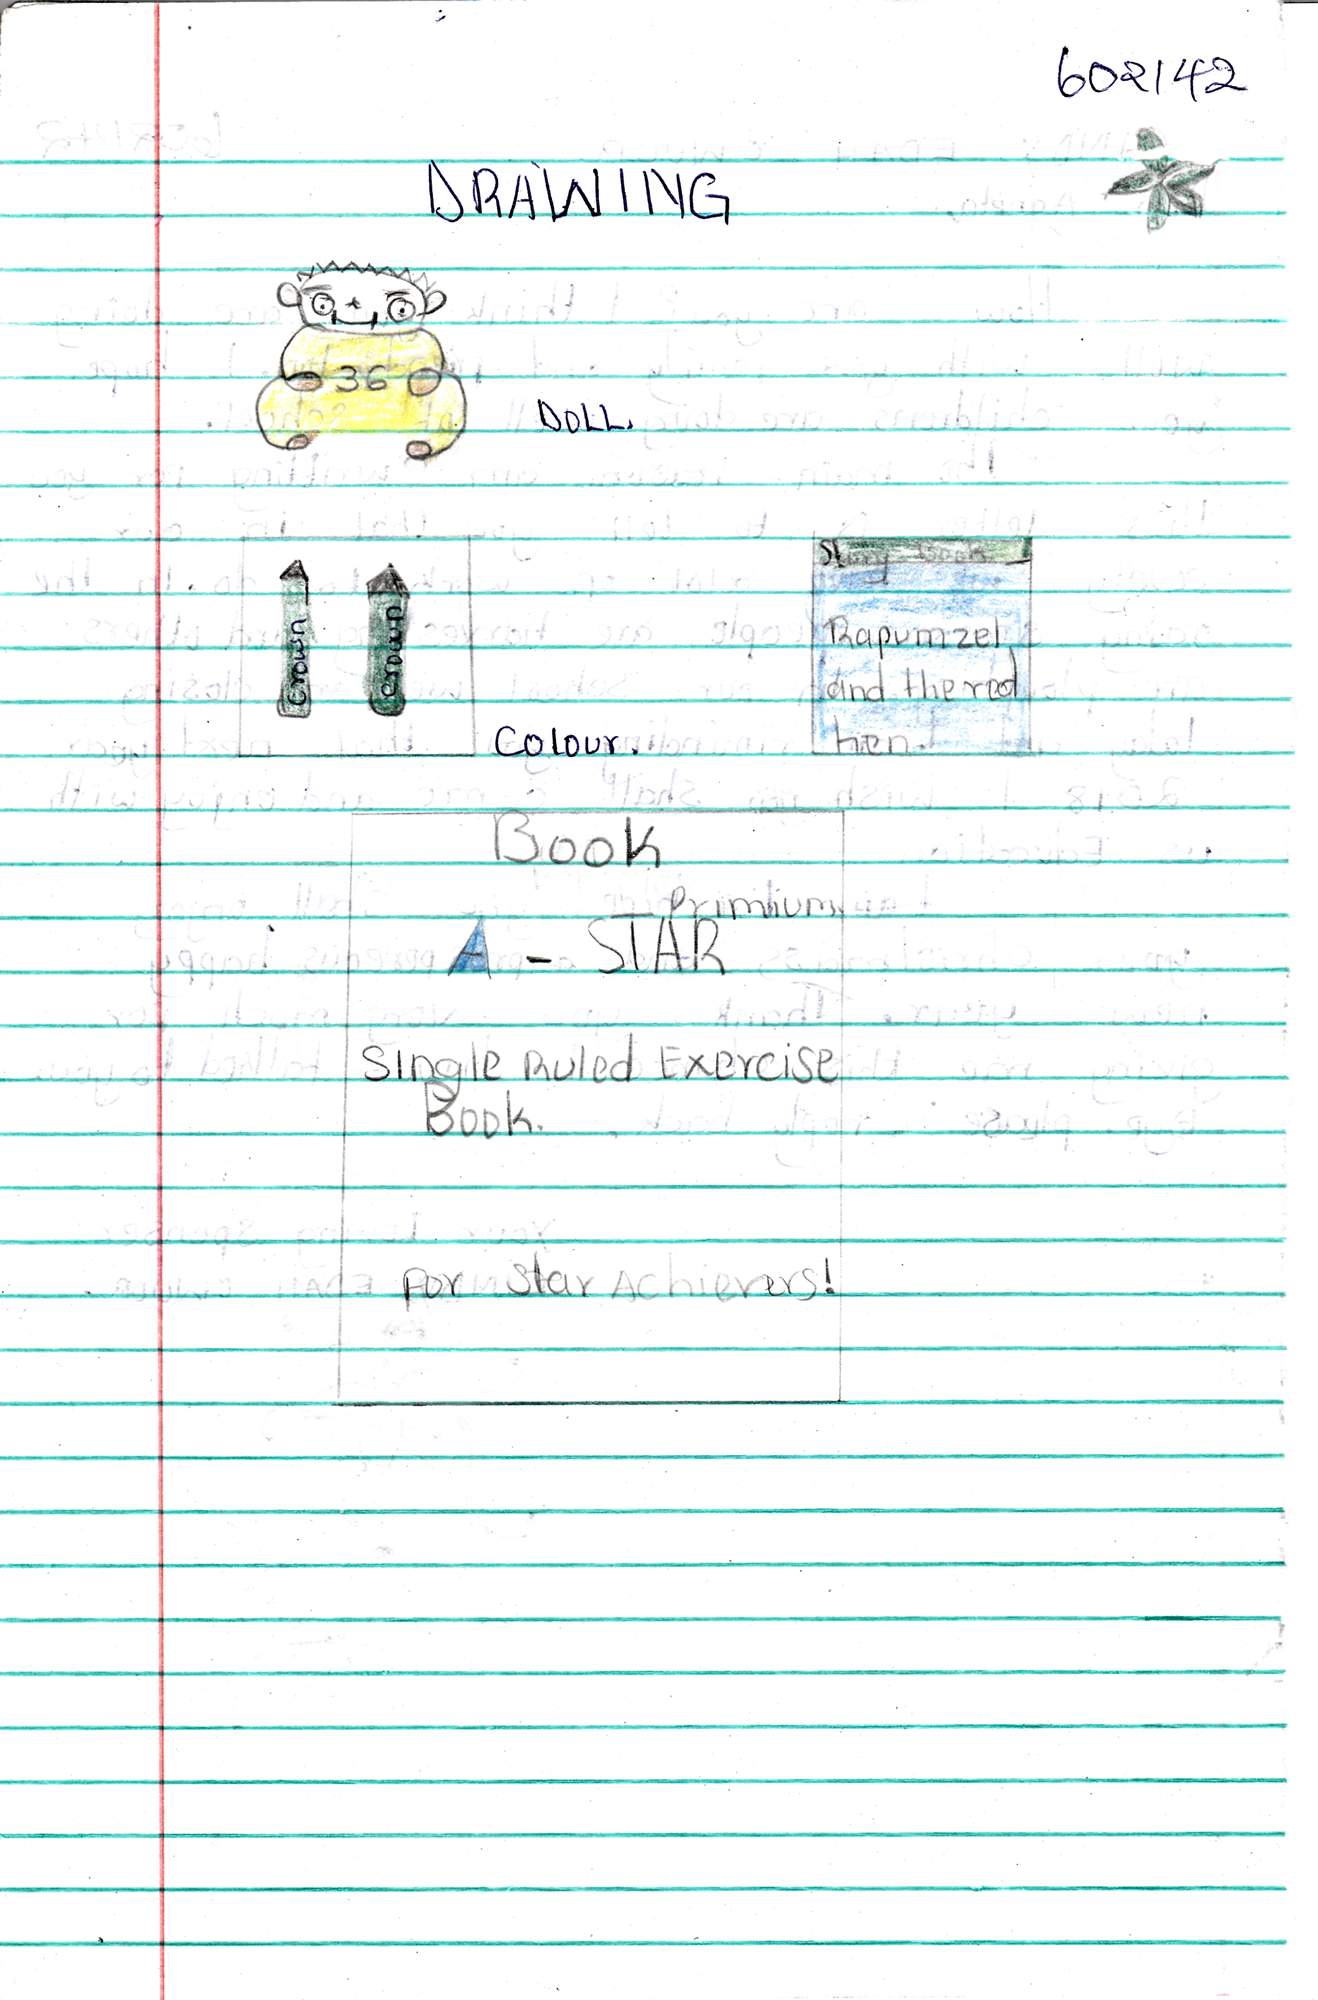 602142
DRAWING
36
DOLL.
crown
crown
Colour.
Story Book
Rapumzel
and the red
hen.
Book
Primium
A - STAR
Single Ruled Exercise
Book.
For Star Achievers!